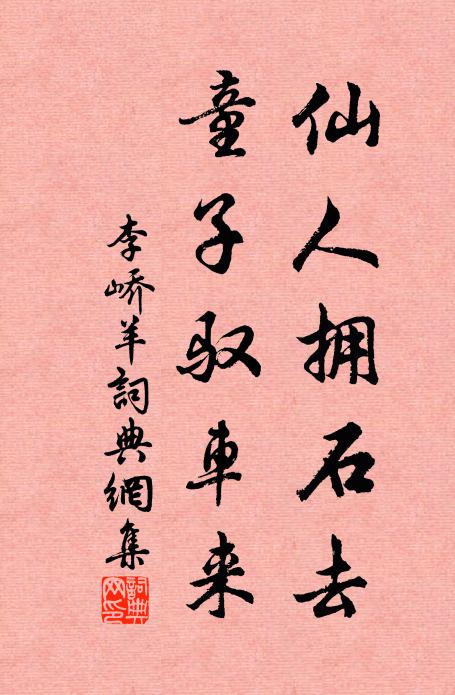 仙人拥石去
童子驭車来
李峤羊詞典網集
詞典
网印